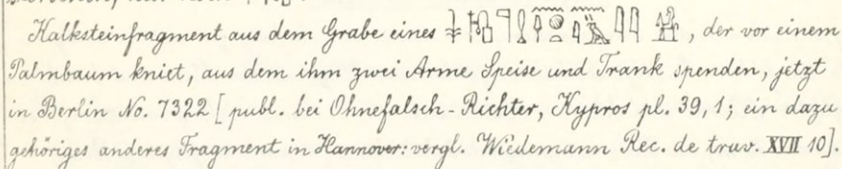 Kalksteinfragment aus dem Grabe eines , der vor einem
Palmbaum kniet, aus dem ihm zwei Arme Speise und Trank spenden, jetzt
in Berlin No. 7322 [publ. bei Ohnefalsch-Richter, Kypros pl. 39,1; ein dazu
gehöriges anderes Fragment in Hannover: vergl. Wiedemann Rec. de trav. XVII 10].